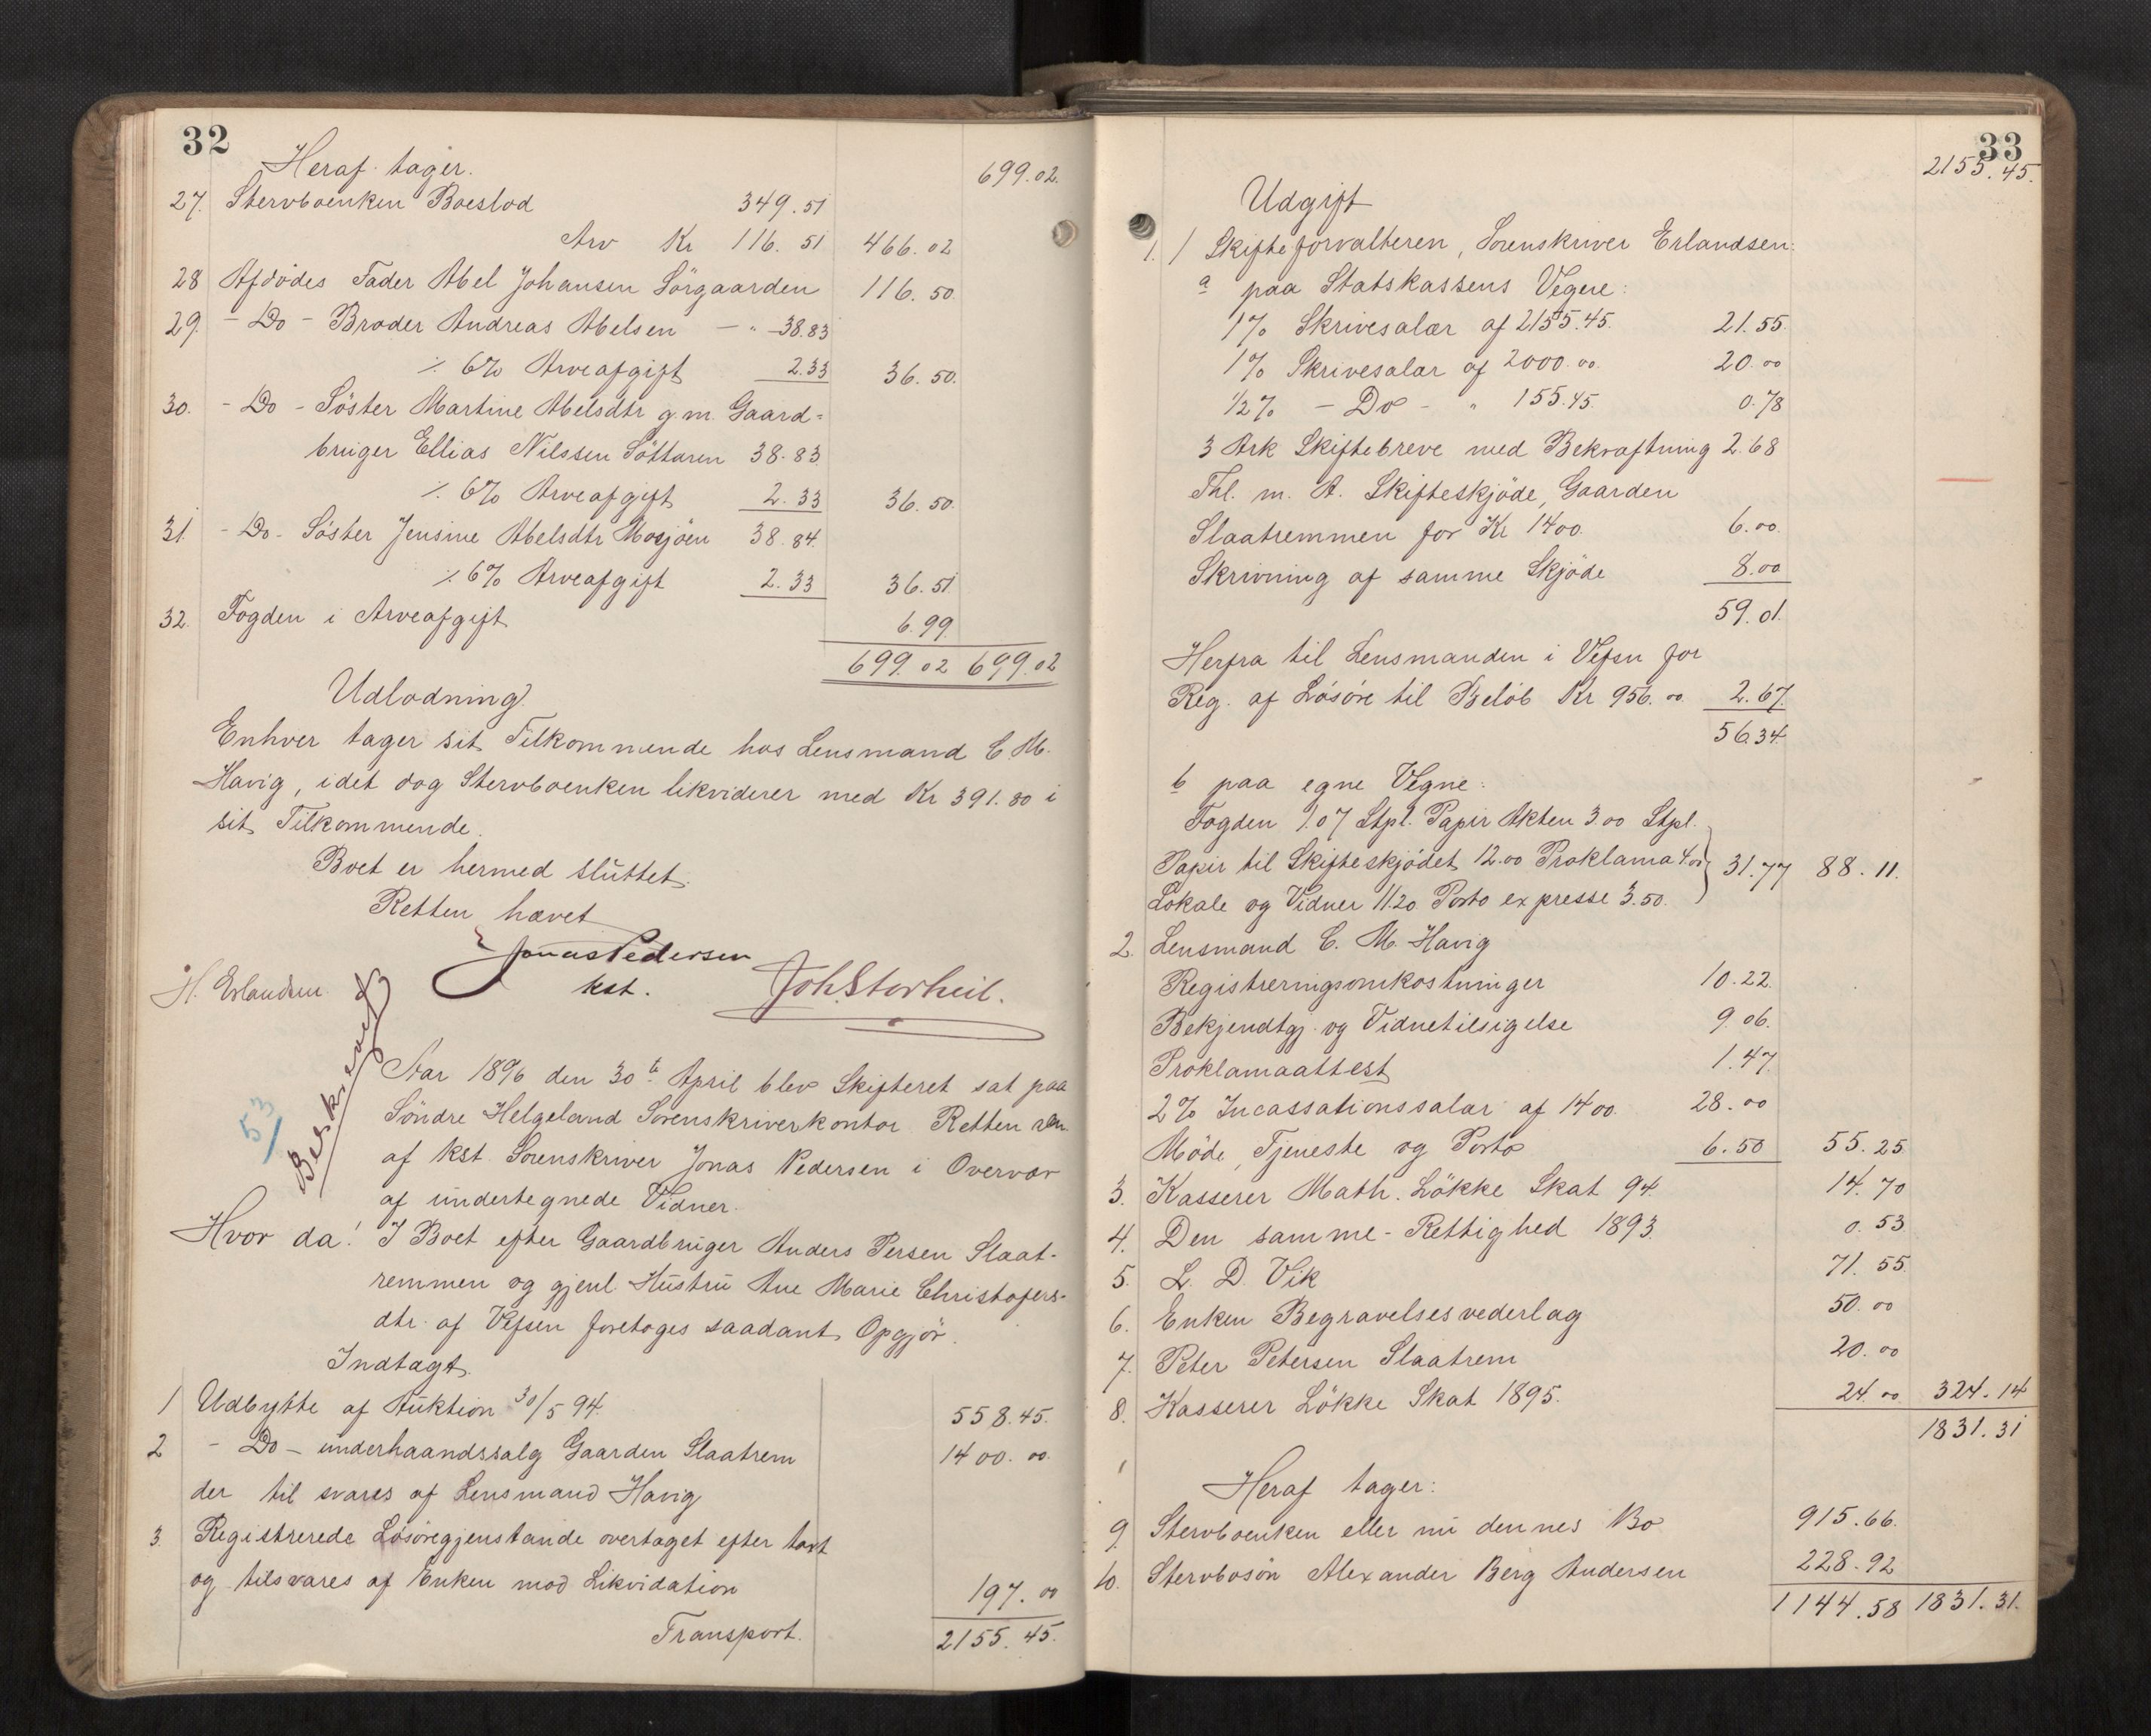 32
Heraf tager. 699.02.
27. Stervboenken Boeslod 349.51
Arv Kr 116.51 466.02
28 Afdödes Fader Abel Johansen Sörgaarden 116.50
29. - Do - Broder Andreas Abelsen - " - 38.83
÷ 6% Arveafgift 2.33 36.50.
30. - Do - Söster Martine Abelsdtr g.m. Gaard=
bruger Ellias Nilssen Söttaren 38.83
÷ 6% Arveafgift 2.33 36.50.
31. - Do - Söster Jensine Abelsdtr Mosjöen 38.84.
÷ 6% Arveafgift 2.33 36.51
32. Fogden i Arveafgift 6.99
699.02 699.02
Udlodning.
Enhver tager sit Tilkommende hos Lensmand C. M.
Havig, idet dog Stervboenken likviderer med Kr 391.80 i
sit Tilkommende.
Boet er hermed sluttet.
Retten hævet
Jonas Pedersen
kst.
H. Erlandsen Joh. Storheil.
Beskrevet
53
Aar 1896 den 30te April blev Skifteret sat paa
Söndre Helgeland Sorenskriverkontor. Retten adm.
af kst. Sorenskriver Jonas Pedersen i Overvær
af undertegnede Vidner.
Hvor da! I Boet efter Gaardbruger Anders Persen Slaat-
remmen og gjenl. Hustru Ane Marie Christofers-
dtr. af Vefsen foretoges saadant Opgjör.
Indtægt.
1 Udbytte af Auktion 30/5 94. 558.45.
2 - Do - underhaandssalg Gaarden Slaatrem 1400.00.
der til svares af Lensmand Havig
3. Registrerede Lösöregjenstande overtaget efter taxt
og tilsvares af Enken mod Likvidation 197.00
Transport. 2155.45.
33
2155.45.
Udgift
1. / Skifteforvalteren, Sorenskriver Erlandsen:
a paa Statskassens Vegne:
1% Skrivesalær af 2155.45. 21.55.
1% Skrivesalær af 2000.00. 20.00
1/2% - Do - " 155.45. 0.78
3 Ark Skiftebreve med Bekræftning 2.68
Thl. m. A. Skifteskjöde, Gaarden
Slaatremmen for Kr 1400. 6.00.
Skrivning af samme Skjöde 8.00
59.01.
Herfra til Lensmanden i Vefsn for
Reg. af Lösöre til Belöb Kr 956.00. 2.67.
56.34.
b paa egne Vegne:
Fogden 1.07 Stpl. Papir Akten 3.00 Stpl.
Papir til Skifteskjödet 12.00 Proklama 4.00 31.77 88.11.
Lokale og Vidner 11.20. Porto expresse 3.50.
2. Lensmand C. M. Havig
Registreringsomkostninger 10.22.
Bekjendtgj. og Vidnetilsigelse 9.06.
Proklamaattest 1.47.
2% Incassationssalær af 1400. 28.00
Möde, Tjeneste og Porto 6.50 55.25
3. Kasserer Math. Lökke Skat 94. 14.70
4. Den samme - Rettighed 1893. 0.53
5. L. D. Vik 71.55.
6. Enken Begravelsesvederlag 50.00
7. Peter Petersen Slaatrem 20.00
8. Kasserer Lökke Skat 1895. 24.00 324.14
1831.31
Heraf tager:
9. Stervboenken eller nu dennes Bo 915.66.
10. Stervbosön Alexander Berg Andersen 228.92
1144.58 1831.31.